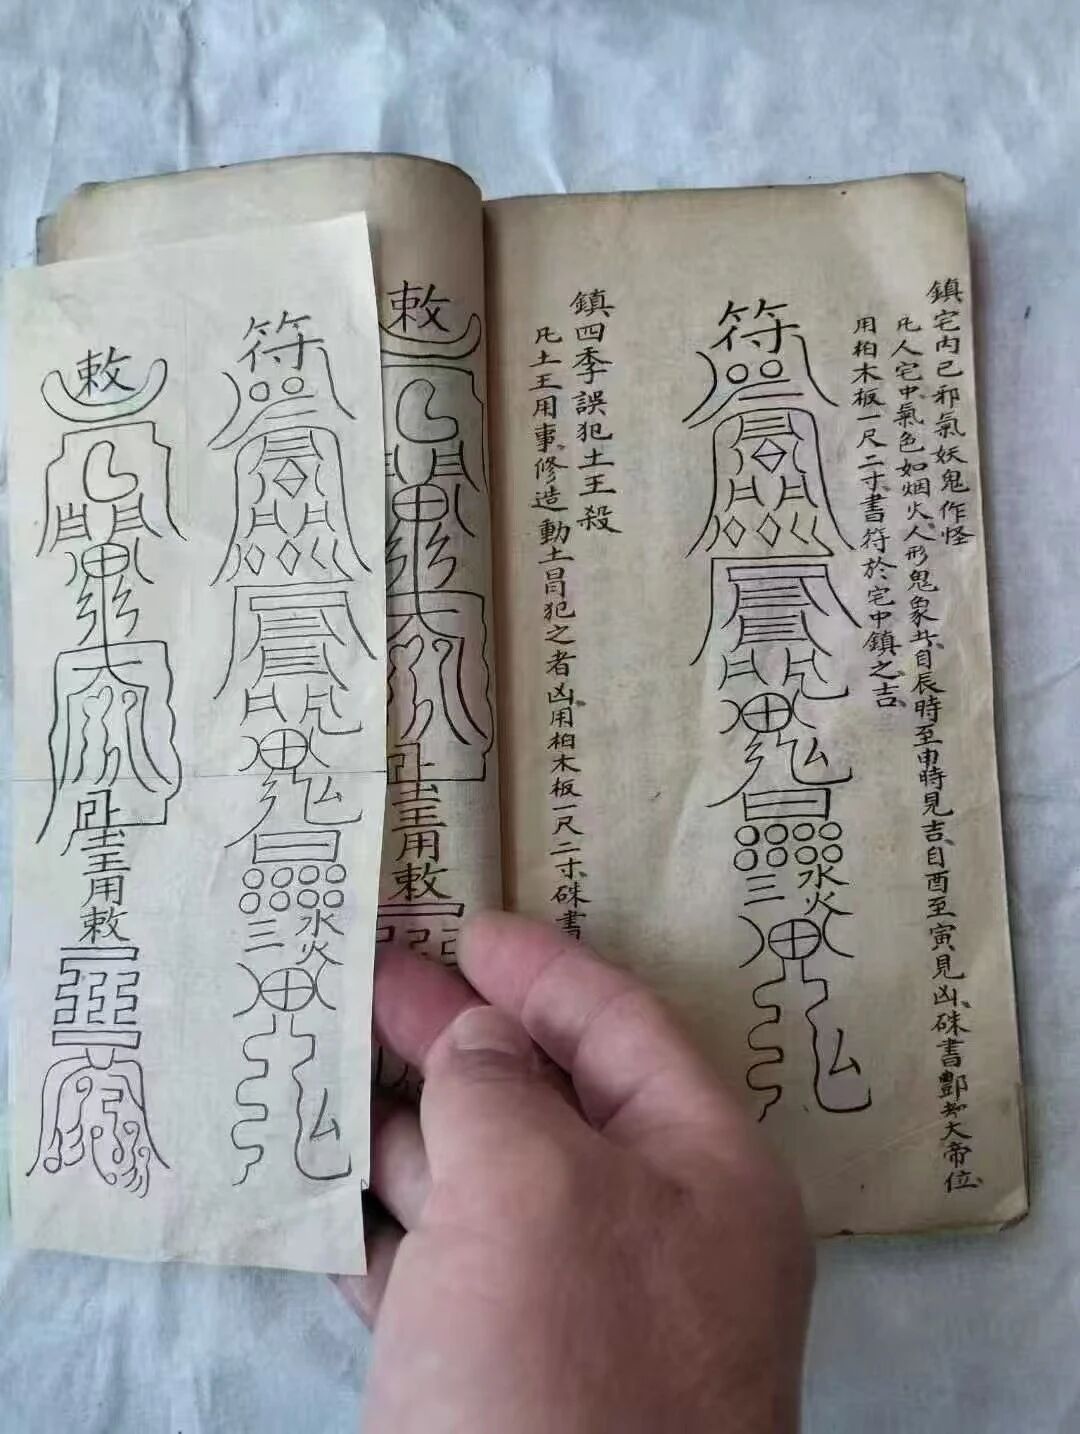 鎮宅内已邪氣妖鬼作怪
凡人宅中氣色如烟火人形鬼象廾自辰時至申時見吉自酉至寅見凶硃書酆都大帝位
用柏木板一尺二寸書符於宅中鎮之吉
符
水火
三
鎮四季誤犯土王殺
凡土王用事修造動土冒犯之者凶用柏木板一尺二寸硃書
敕
土王用敕
符
水火
三
敕
土王用敕